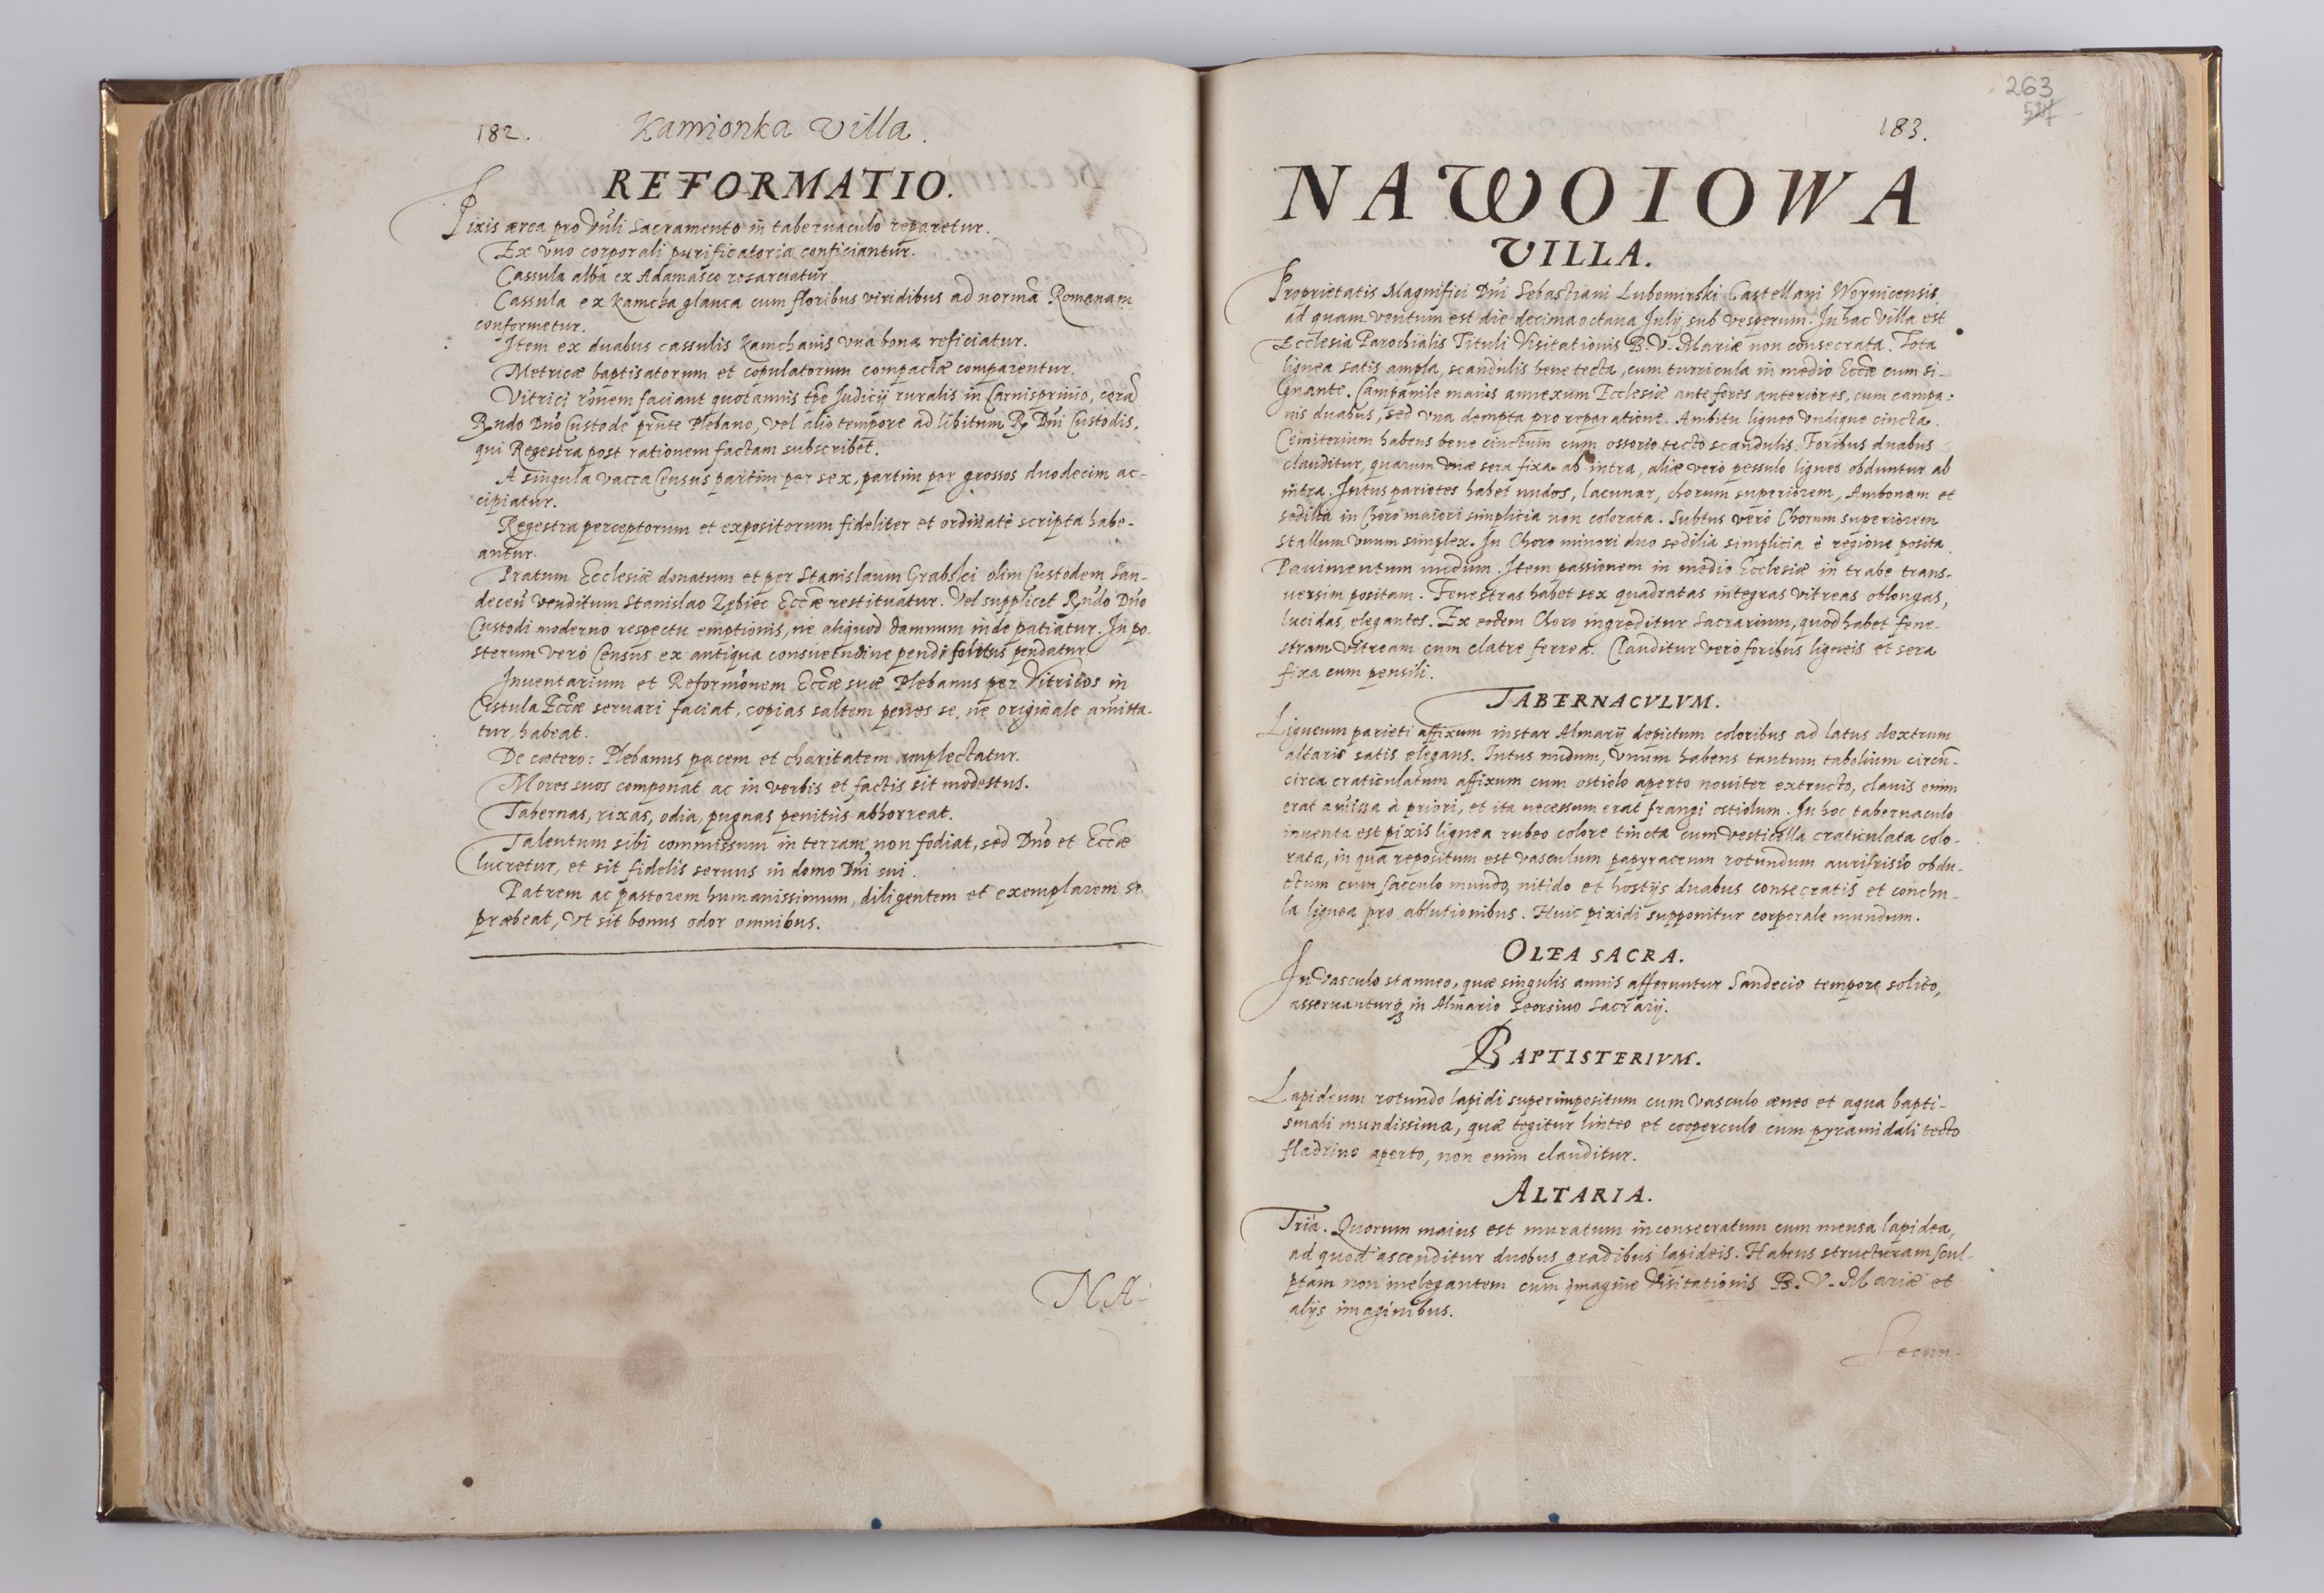 182.
Kamionka Villa.
REFORMATIO.
Pixis ærea pro Vŭli Sacramento in tabernaculo reparetur.
Ex vno corporali purificatoria conficiantur.
Cassula alba ex Adamasco resarciatur.
Cassula ex kamcha glauca cum floribus viridibus ad normā Romanam
conformetur.
Item ex duabus cassulis kamchanis vna bona reficiatur.
Metricæ baptisatorum et copulatorum compactæ comparentur.
Vitrici rōnem faciant quotannis tpē Judicij ruralis in Carnisprinio, corā
Rndo Dnō Custode prnte Plebano, vel alio tempore ad libitum R. Dni Custodis,
qui Regestra post rationem factam subscribet.
A singula vacca Census partim per sex, partim per grossos duodecim ac-
cipiatur.
Regestra perceptorum et expositorum fideliter et ordinatè scripta habe-
antur.
Pratum Ecclesiæ donatum et per Stanislaum Grabski olim Custodem San-
deceñ venditum Stanislao Zębiec Eccæ restituatur. Vel supplicet Rndo Dno
Custodi moderno respectu emptionis, ne aliquod damnum inde patiatur. In po-
sterum verò Census ex antiqua consuetudine pendi solitus pendatur.
Inuentarium et Reformōnem Eccæ suæ Plebanus per Vitricos in
Cistula Eccæ seruari faciat, copias saltem penes se, ne originale amitta-
tur, habeat.
De cætero: Plebanus pacem et charitatem amplectatur.
Mores suos componat ac in verbis et factis sit modestus.
Tabernas, rixas, odia, pugnas penitùs abhorreat.
Talentum sibi commissum in terram non fodiat, sed Dnō et Eccæ
lucretur, et sit fidelis seruus in domo Dni sui.
Patrem ac pastorem humanissimum, diligentem et exemplarem se
præbeat, vt sit bonus odor omnibus.
NA-
263
183.
NAWOIOWA
VILLA.
Proprietatis Magnifici Dni Sebastiani Lubomirski Castellani Woynicensis,
ad quam ventum est die decima octaua Julij sub vesperum. In hac Villa est
Ecclesia Parochialis Tituli Visitationis B. V. Mariæ non consecrata. Tota
lignea satis ampla, scandulis bene tecta, cum turricula in medio Eccæ cum si-
gnante. Campanile maius annexum Ecclesiæ ante fores anteriores, cum campa-
nis duabus, sed vna dempta pro reparatione. Ambitu ligneo vndique cincta.
Cæmiterium habens bene cinctum cum ossorio tecto scandulis. Foribus duabus
clauditur, quarum vnæ sera fixa ab intra, aliæ verò pessulo ligneo obduntur ab
intra. Intus parietes habet nudos, lacunar, chorum superiorem, Ambonam et
sedilia in Choro maiori simplicia non colorata. Subtus verò Chorum superiorem
stallum vnum simplex. In Choro minori duo sedilia simplicia è regione posita.
Pauimentum nudum. Item passionem in medio Ecclesiæ in trabe trans-
uersim positam. Fenestras habet sex quadratas integras vitreas oblongas,
lucidas elegantes. Ex eodem Choro ingreditur Sacrarium, quod habet fene-
stram vitream cum clatre ferrea. Clauditur verò foribus ligneis et sera
fixa cum pensili.
TABERNACVLVM.
Ligneum parieti affixum instar Almarij depictum coloribus ad latus dextrum
altaris satis elegans. Intus nudum, vnum habens tantum tabolium circū-
circa craticulatum affixum cum ostiolo aperto nouiter extructo, clauis enim
erat amissa à priori, et ita necessum erat frangi ostiolum. In hoc tabernaculo
inuenta est pixis lignea rubeo colore tincta cum vesticella craticulata colo-
rata, in qua repositum est vasculum papyraceum rotundum aurifrisio obdu-
ctum cum sacculo mundo, nitido et hostijs duabus consecratis et conchu-
la lignea pro ablutionibus. Huic pixidi supponitur corporale mundum.
OLEA SACRA.
In vasculo stanneo, quæ singulis annis afferuntur Sandecio tempore solito,
asseruanturq̃ in Almario Seorsiuo Sacrarij.
BAPTISTERIVM.
Lapideum rotundo lapidi superimpositum cum vasculo æneo et aqua bapti-
smali mundissima, quæ tegitur linteo et cooperculo cum pyramidali tecto
fladrino aperto, non enim clauditur.
ALTARIA.
Tria. Quorum maius est muratum inconsecratum cum mensa lapidea,
ad quod ascenditur duobus gradibus lapideis. Habens structuram scul-
ptam non inelegantem cum imagine Visitationis B. V. Mariæ et
alijs imaginibus.
Secun-